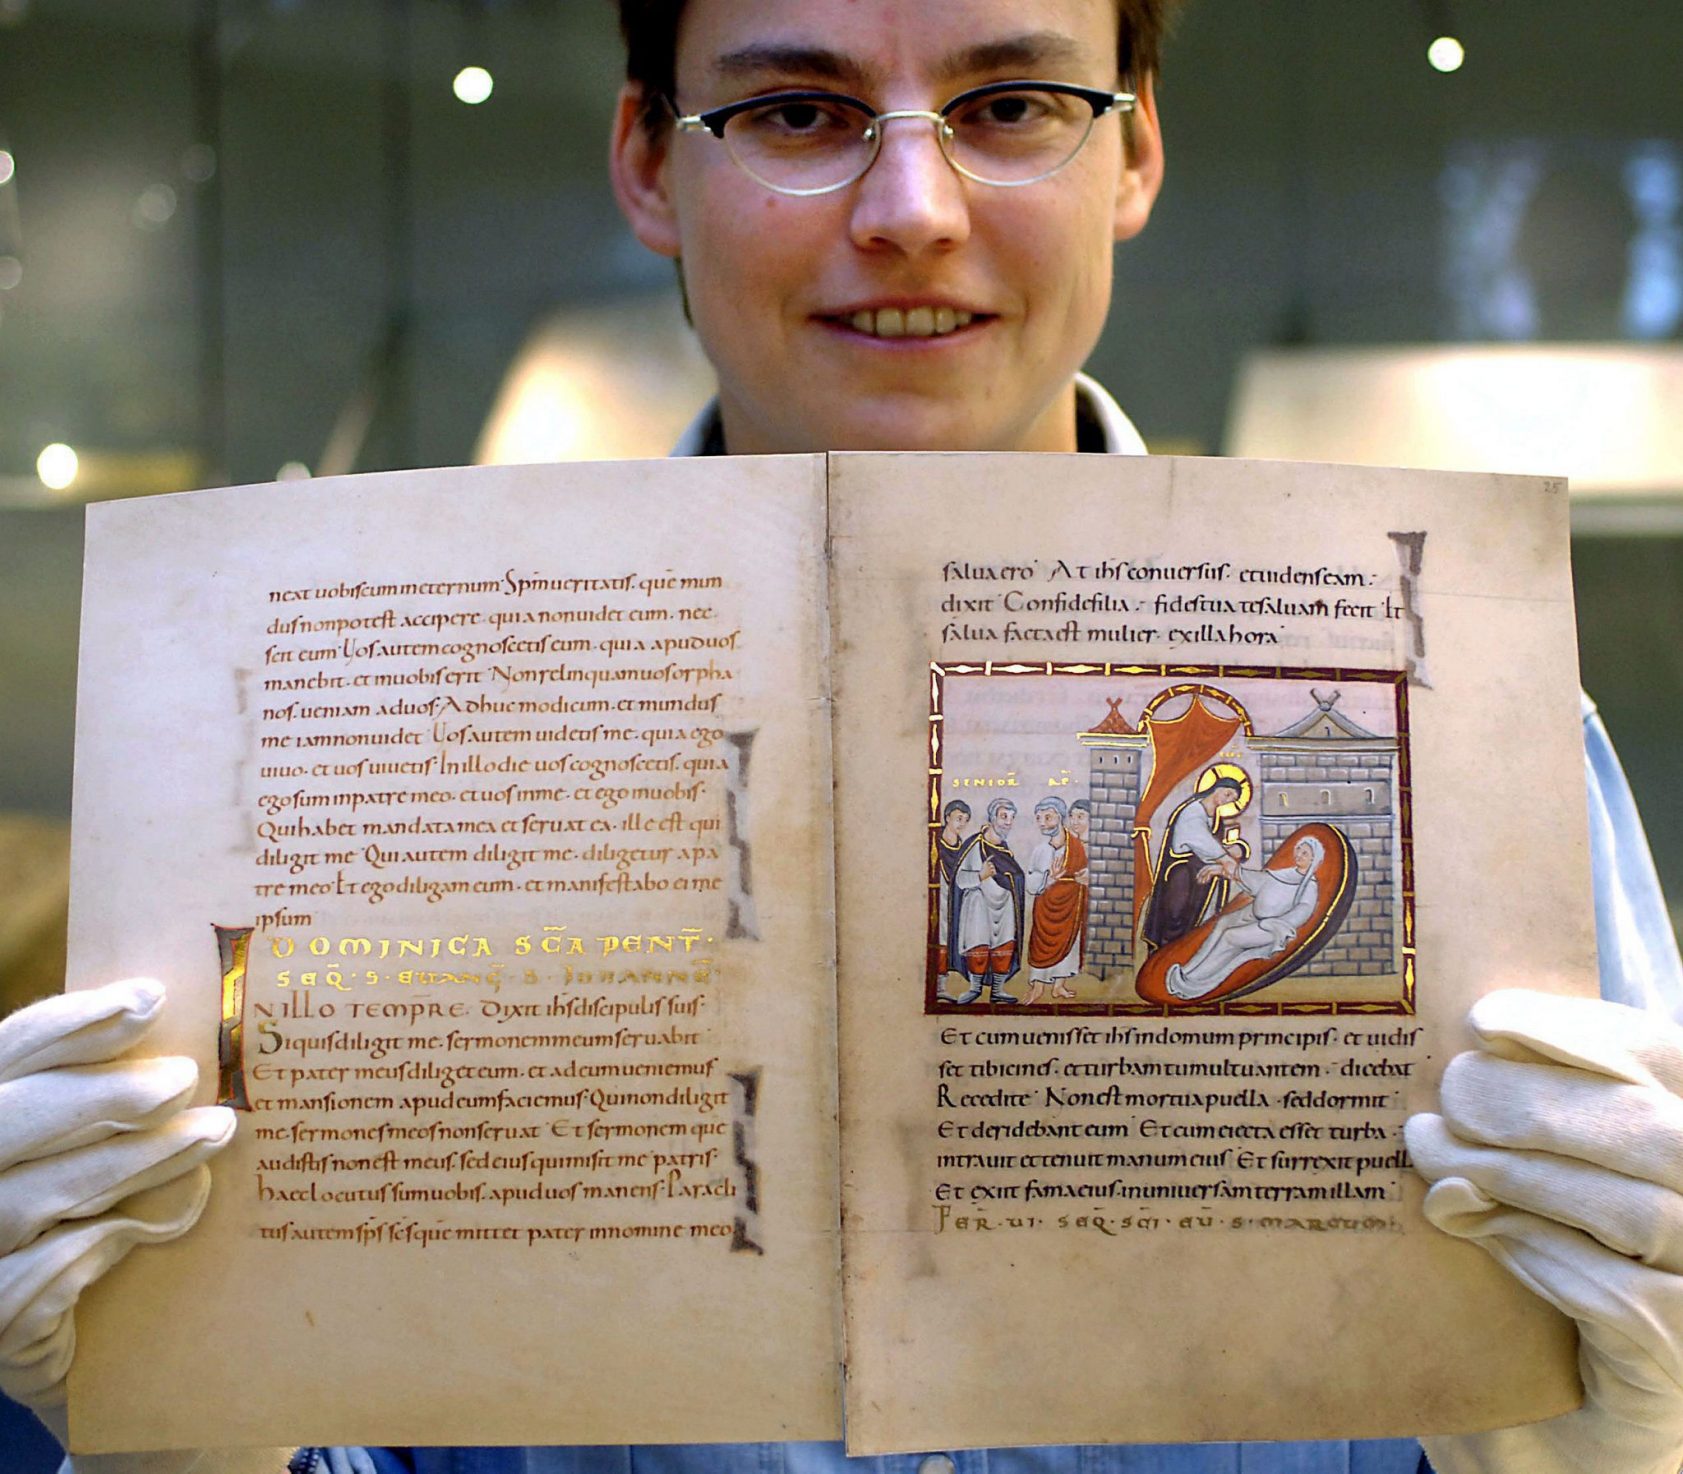 neat uobiscum in eternum· Spm̄ ueritatis· quē mun
dus non potest accipere· quia non uidet eum· nec
scit eum· Uos autem cognoscetis eum· quia apud uos
manebit· et in uobis erit· Non relinquam uos orpha
nos· ueniam ad uos· Adhuc modicum· et mundus
me iam non uidet· Uos autem uidetis me· quia ego
uiuo· et uos uiuetis· In illo die uos cognoscetis· quia
ego sum in patre meo· et uos in me· et ego in uobis·
Qui habet mandata mea et seruat ea· ille est qui
diligit me· Qui autem diligit me· diligetur a pa
tre meo· Et ego diligam eum· et manifestabo ei me
ipsum
DOMINICA SC̄A PENT̄·
SEQ̄· S· EUANḠ· S· IOHANNĒ
IN ILLO TEMPR̄E· Dixit ih̄s discipulis suis·
Si quis diligit me· sermonem meum seruabit
Et pater meus diliget eum· et ad eum ueniemus
et mansionem apud eum faciemus· Qui non diligit
me· sermones meos non seruat· Et sermonem quē
audistis non est meus· sed eius qui misit me patris·
haec locutus sum uobis· apud uos manens· Paracli
tus autem sp̄s sc̄s quē mittet pater in nomine meo
25
salua ero· At ih̄s conuersus· et uidens eam·
dixit· Confide filia· fides tua te saluam fecit· Et
salua facta est mulier· ex illa hora·
SENIOR̄ AP̄·
Et cum uenisset ih̄s in domum principis· et uidis
set tibicines· et turbam tumultuantem· dicebat
Recedite· Non est mortua puella· sed dormit·
Et deridebant eum· Et cum eiecta esset turba·
intrauit et tenuit manum eius· Et surrexit puell
Et exiit fama eius· in uniuersam terram illam·
FER̄· UI· SEQ̄· SC̄I· EŪ· S· MARCUM·